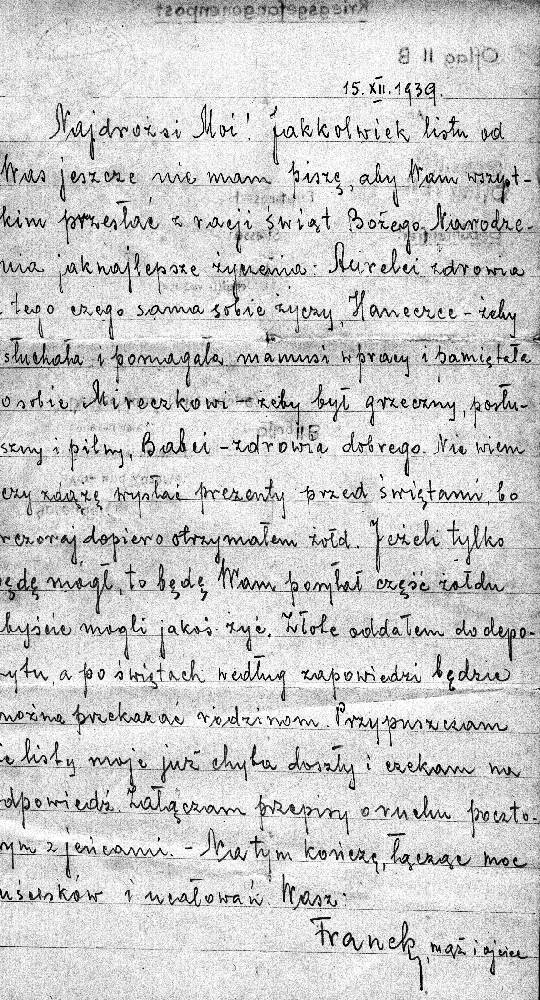 Kriegsgefangenenpost
Oflag II B
15.XII.1939.
Najdrożsi Moi! Jakkolwiek listu od
Was jeszcze nie mam piszę, aby Wam wszyst-
kim przesłać z racji świąt Bożego Narodze-
nia jaknajlepsze życzenia: Aurelci zdrowia
i tego czego sama sobie życzy, Haneczce - żeby
słuchała i pomagała mamusi w pracy i pamiętała
o sobie, Mireczkowi - żeby był grzeczny, posłu-
szny i pilny, Babci - zdrowia dobrego. Nie wiem
czy zdążę wysłać prezenty przed świętami, bo
wczoraj dopiero otrzymałem żołd. Jeżeli tylko
będę mógł, to będę Wam posyłał część żołdu
byście mogli jakoś żyć. Złote oddałem do depo-
zytu, a po świętach według zapowiedzi będzie
można przekazać rodzinom. Przypuszczam
że listy moje już chyba doszły i czekam na
odpowiedź. Załączam przepisy o ruchu poczto-
wym z jeńcami. - Na tym kończę, łącząc moc
uścisków i ucałowań. Wasz:
Franek, mąż i ojciec